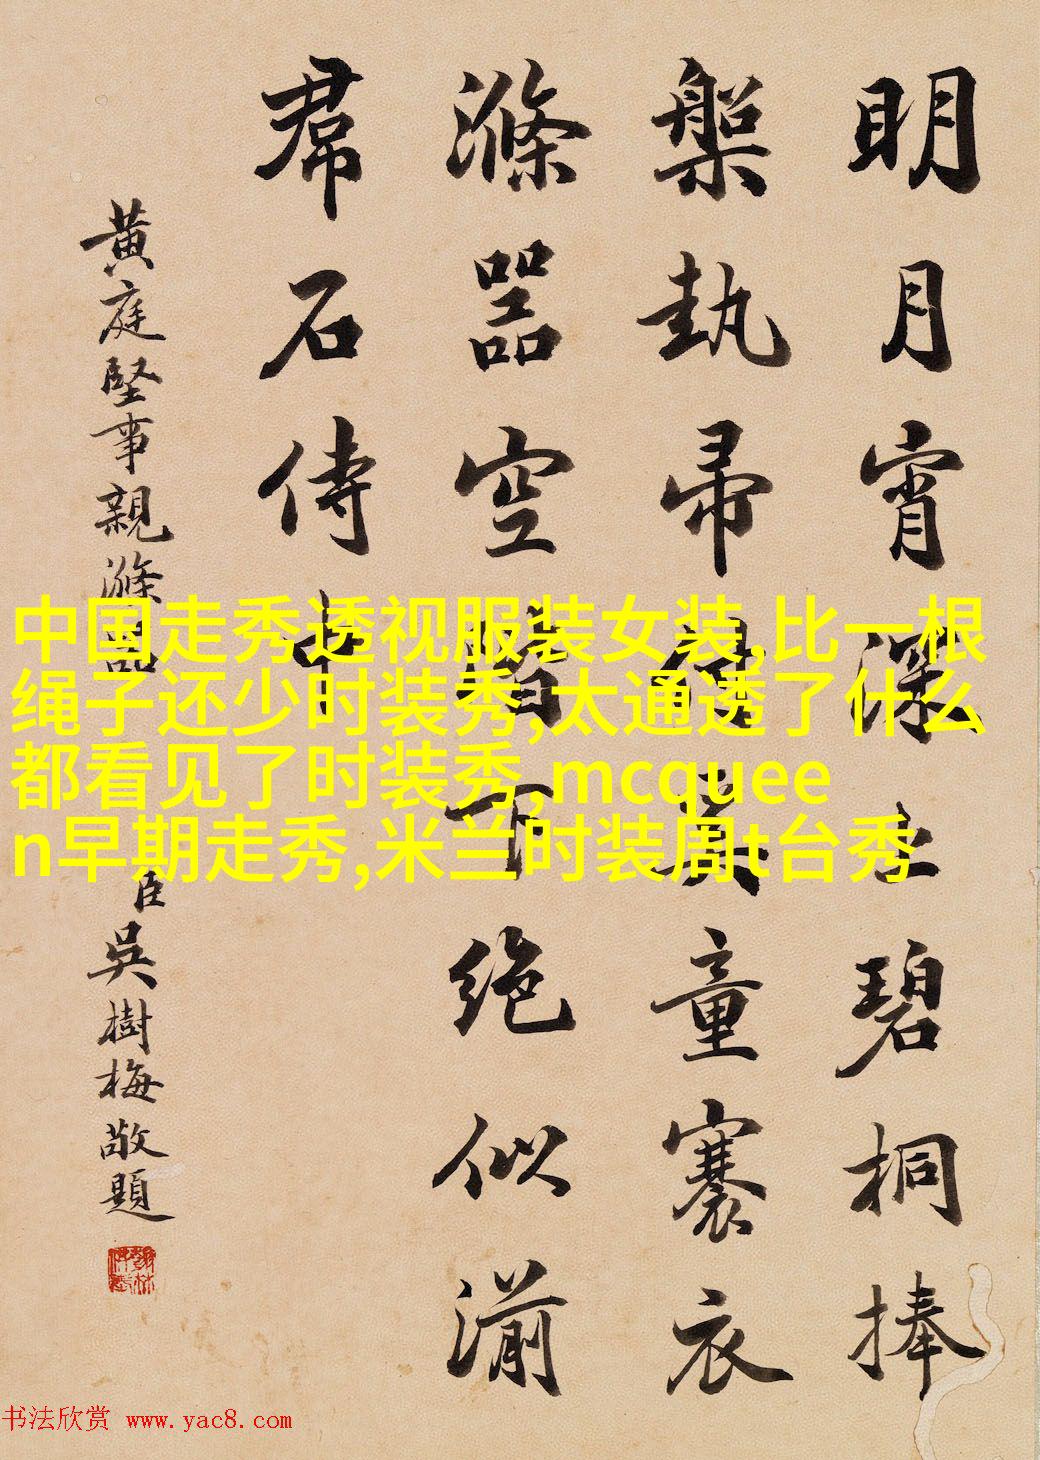 明月宵深上碧桐捧
槃執帚付奚童褰衣
滌器空階下絶似湔
帬石侍中
黄庭堅事親滌器
臣吳樹梅敬題
中国走秀透视服装女装,比一根
绳子还少时装秀,太通透了什么
都看见了时装秀,mcquee
n早期走秀,米兰时装周t台秀
书法欣赏 www.yac8.com